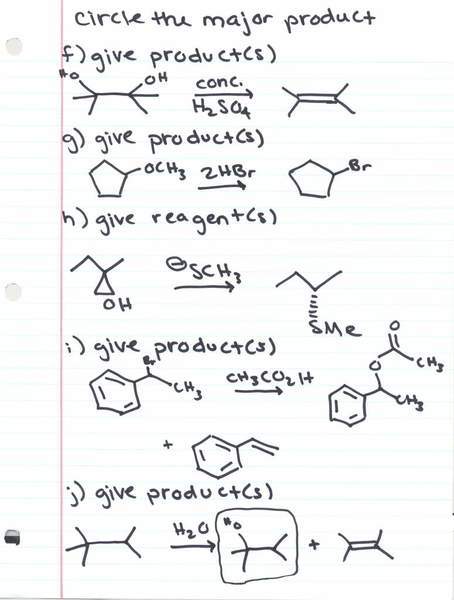 circle the major product
f) give product(s)
HO OH conc.
H2SO4
g) give product(s)
OCH3 2HBr Br
h) give reagent(s)
⊖SCH3
OH
SMe
i) give product(s)
Br O
CH3 CH3CO2H O CH3
CH3
+
j) give product(s)
H2O HO +